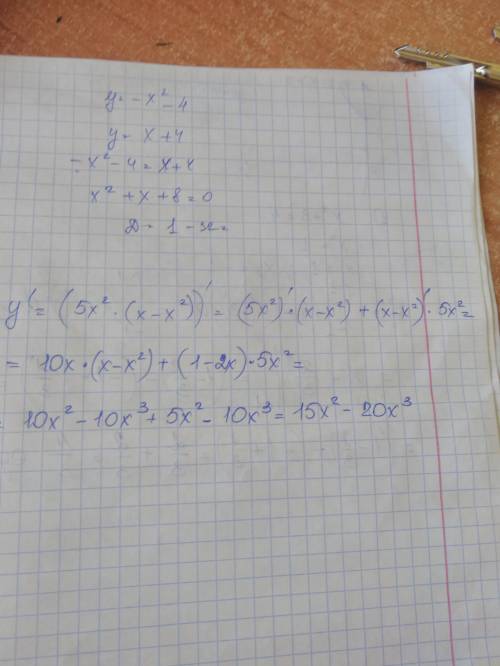 y = -x² - 4
y = x + 4
-x² - 4 = x + 4
x² + x + 8 = 0
D = 1 -
y' = (5x² · (x - x²))' = (5x²)' · (x - x²) + (x - x²)' · 5x² =
= 10x · (x - x²) + (1 - 2x) · 5x² =
= 10x² - 10x³ + 5x² - 10x³ = 15x² - 20x³